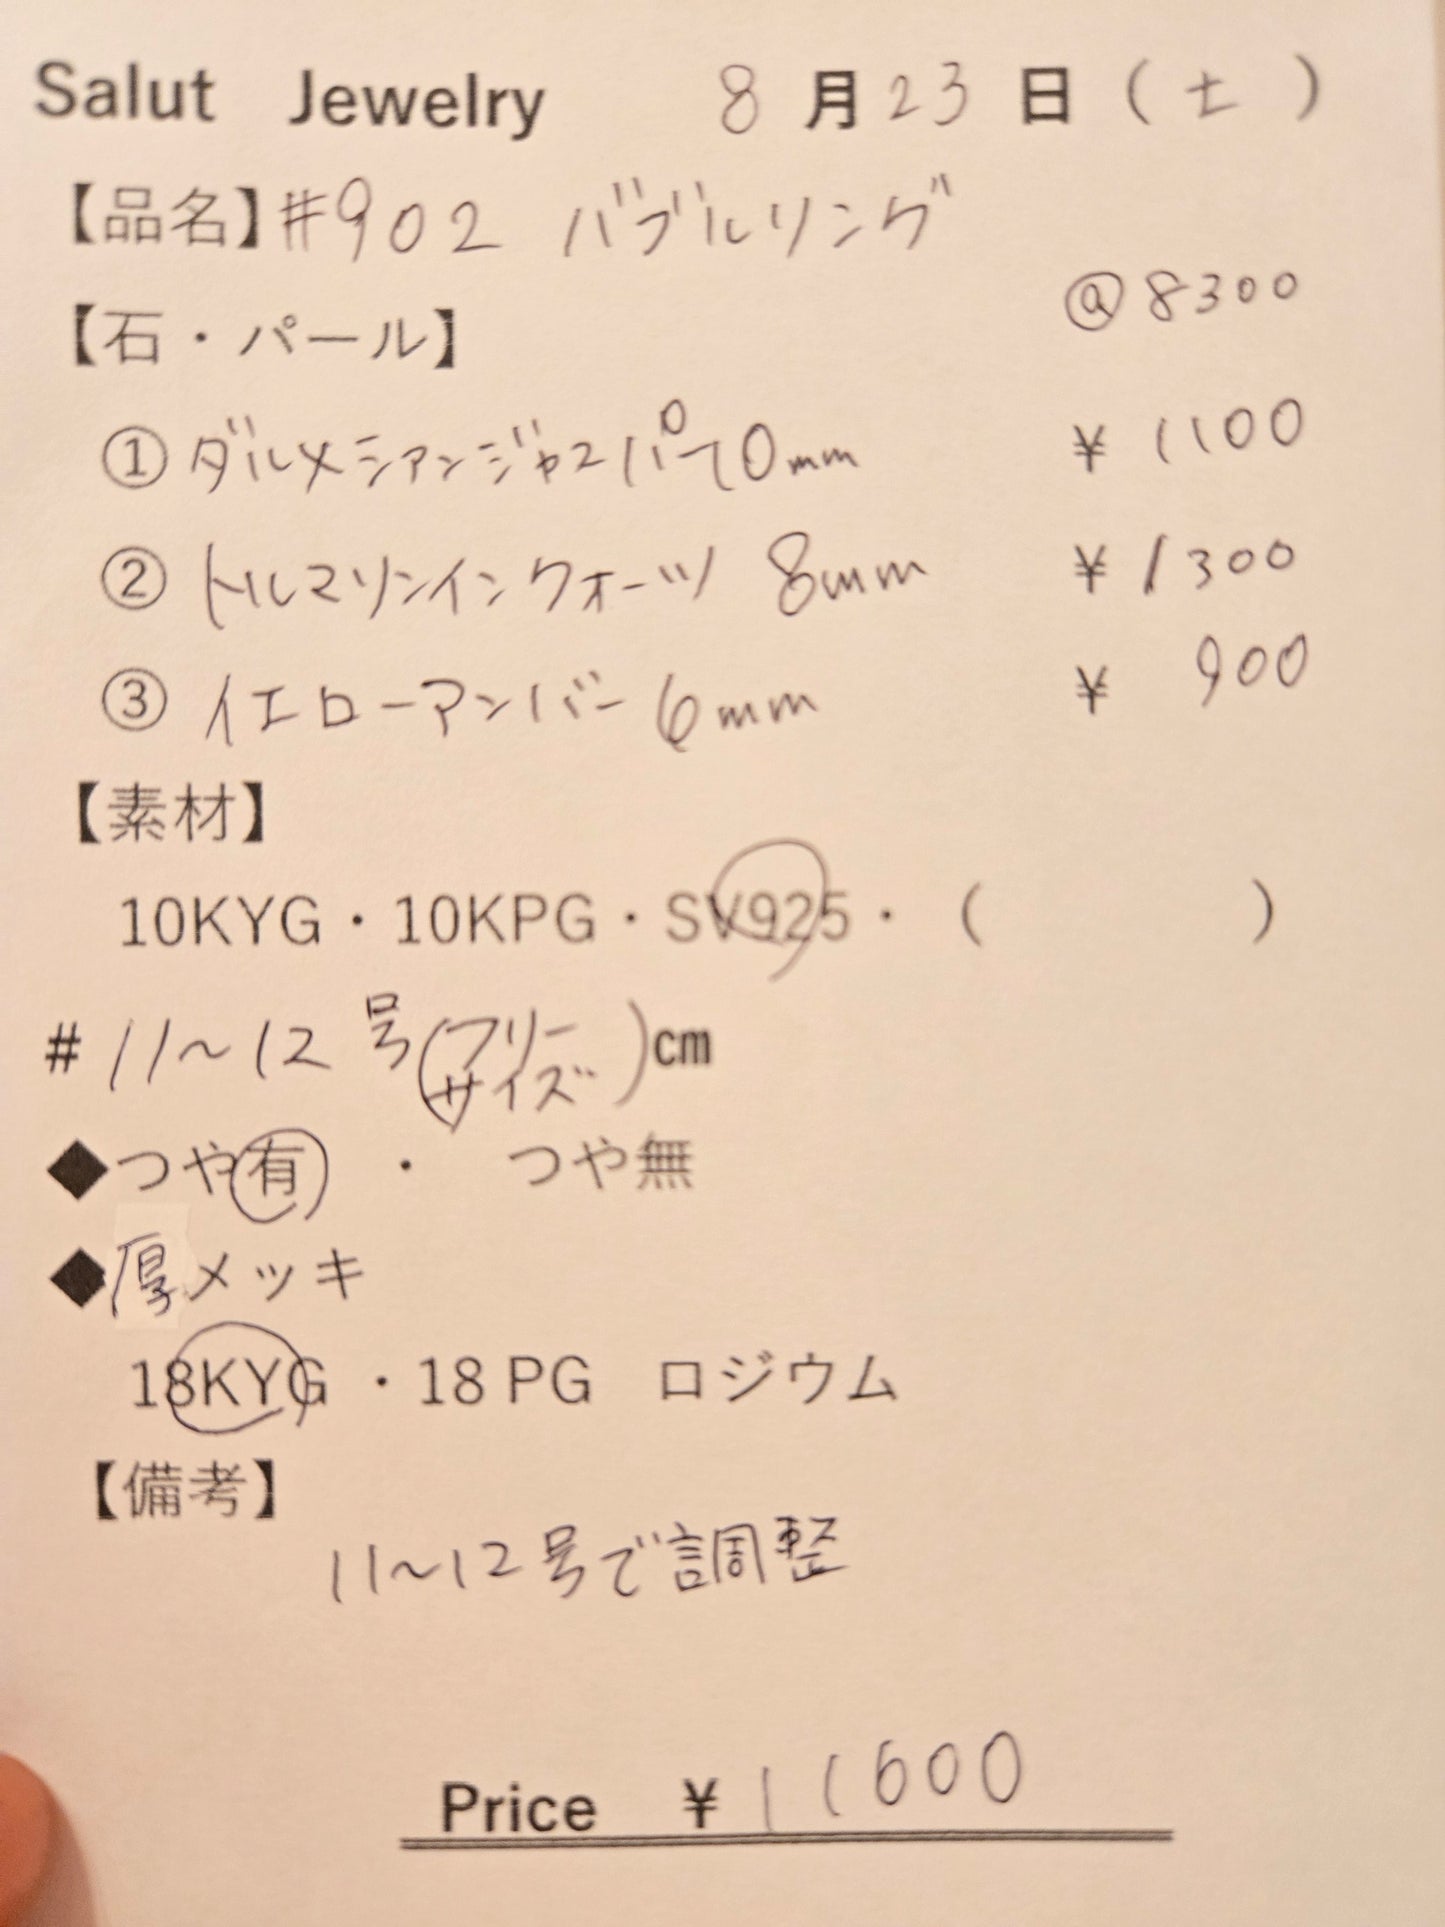 Salut Jewelry 8月23日(土)
【品名】#902 バブルリング
@8300
【石・パール】
①ダルメシアンジャスパー10mm ¥1100
②トルマリンインクォーツ 8mm ¥1300
③イエローアンバー6mm ¥900
【素材】
10KYG・10KPG・SV925・( )
#11〜12号(フリーサイズ)cm
◆つや有 ・ つや無
◆厚メッキ
18KYG ・18 PG ロジウム
【備考】
11〜12号で調整
Price ¥11600